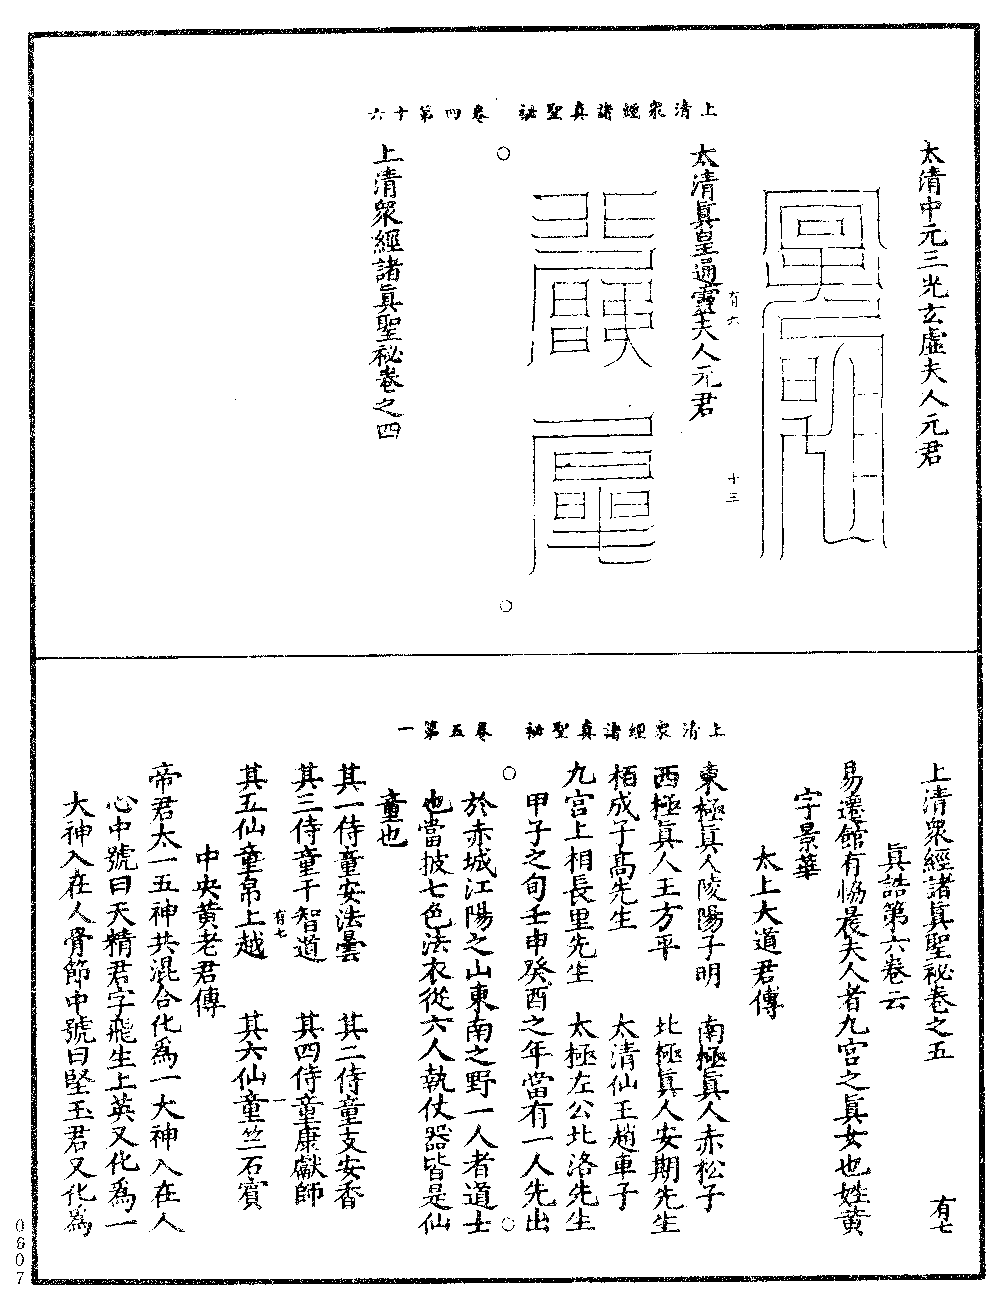 上清衆經諸真聖秘　卷四第十六
太清中元三光玄虛夫人元君
有六　十三
太清眞皇通靈夫人元君
上清衆經諸眞聖祕卷之四
上清衆經諸真聖秘　卷五第一
上清衆經諸眞聖祕卷之五　有七
眞誥第六卷云
易遷館有協晨夫人者九宮之眞女也姓黃
字景華
太上大道君傳
東極眞人陵陽子明　南極眞人赤松子
西極眞人王方平　北極眞人安期先生
栢成子高先生　太清仙王趙車子
九宮上相長里先生　太極左公北洛先生
甲子之旬壬申癸酉之年當有一人先出
於赤城江陽之山東南之野一人者道士
也當披七色法衣從六人執仗器皆是仙
童也
其一侍童安法曇　其二侍童支安香
其三侍童干智道　其四侍童康獻師
有七　一
其五仙童帛上越　其六仙童竺石賓
中央黃老君傳
帝君太一五神共混合化爲一大神入在人
心中號曰天精君字飛生上英又化爲一
大神入在人骨節中號曰堅玉君又化爲
0607